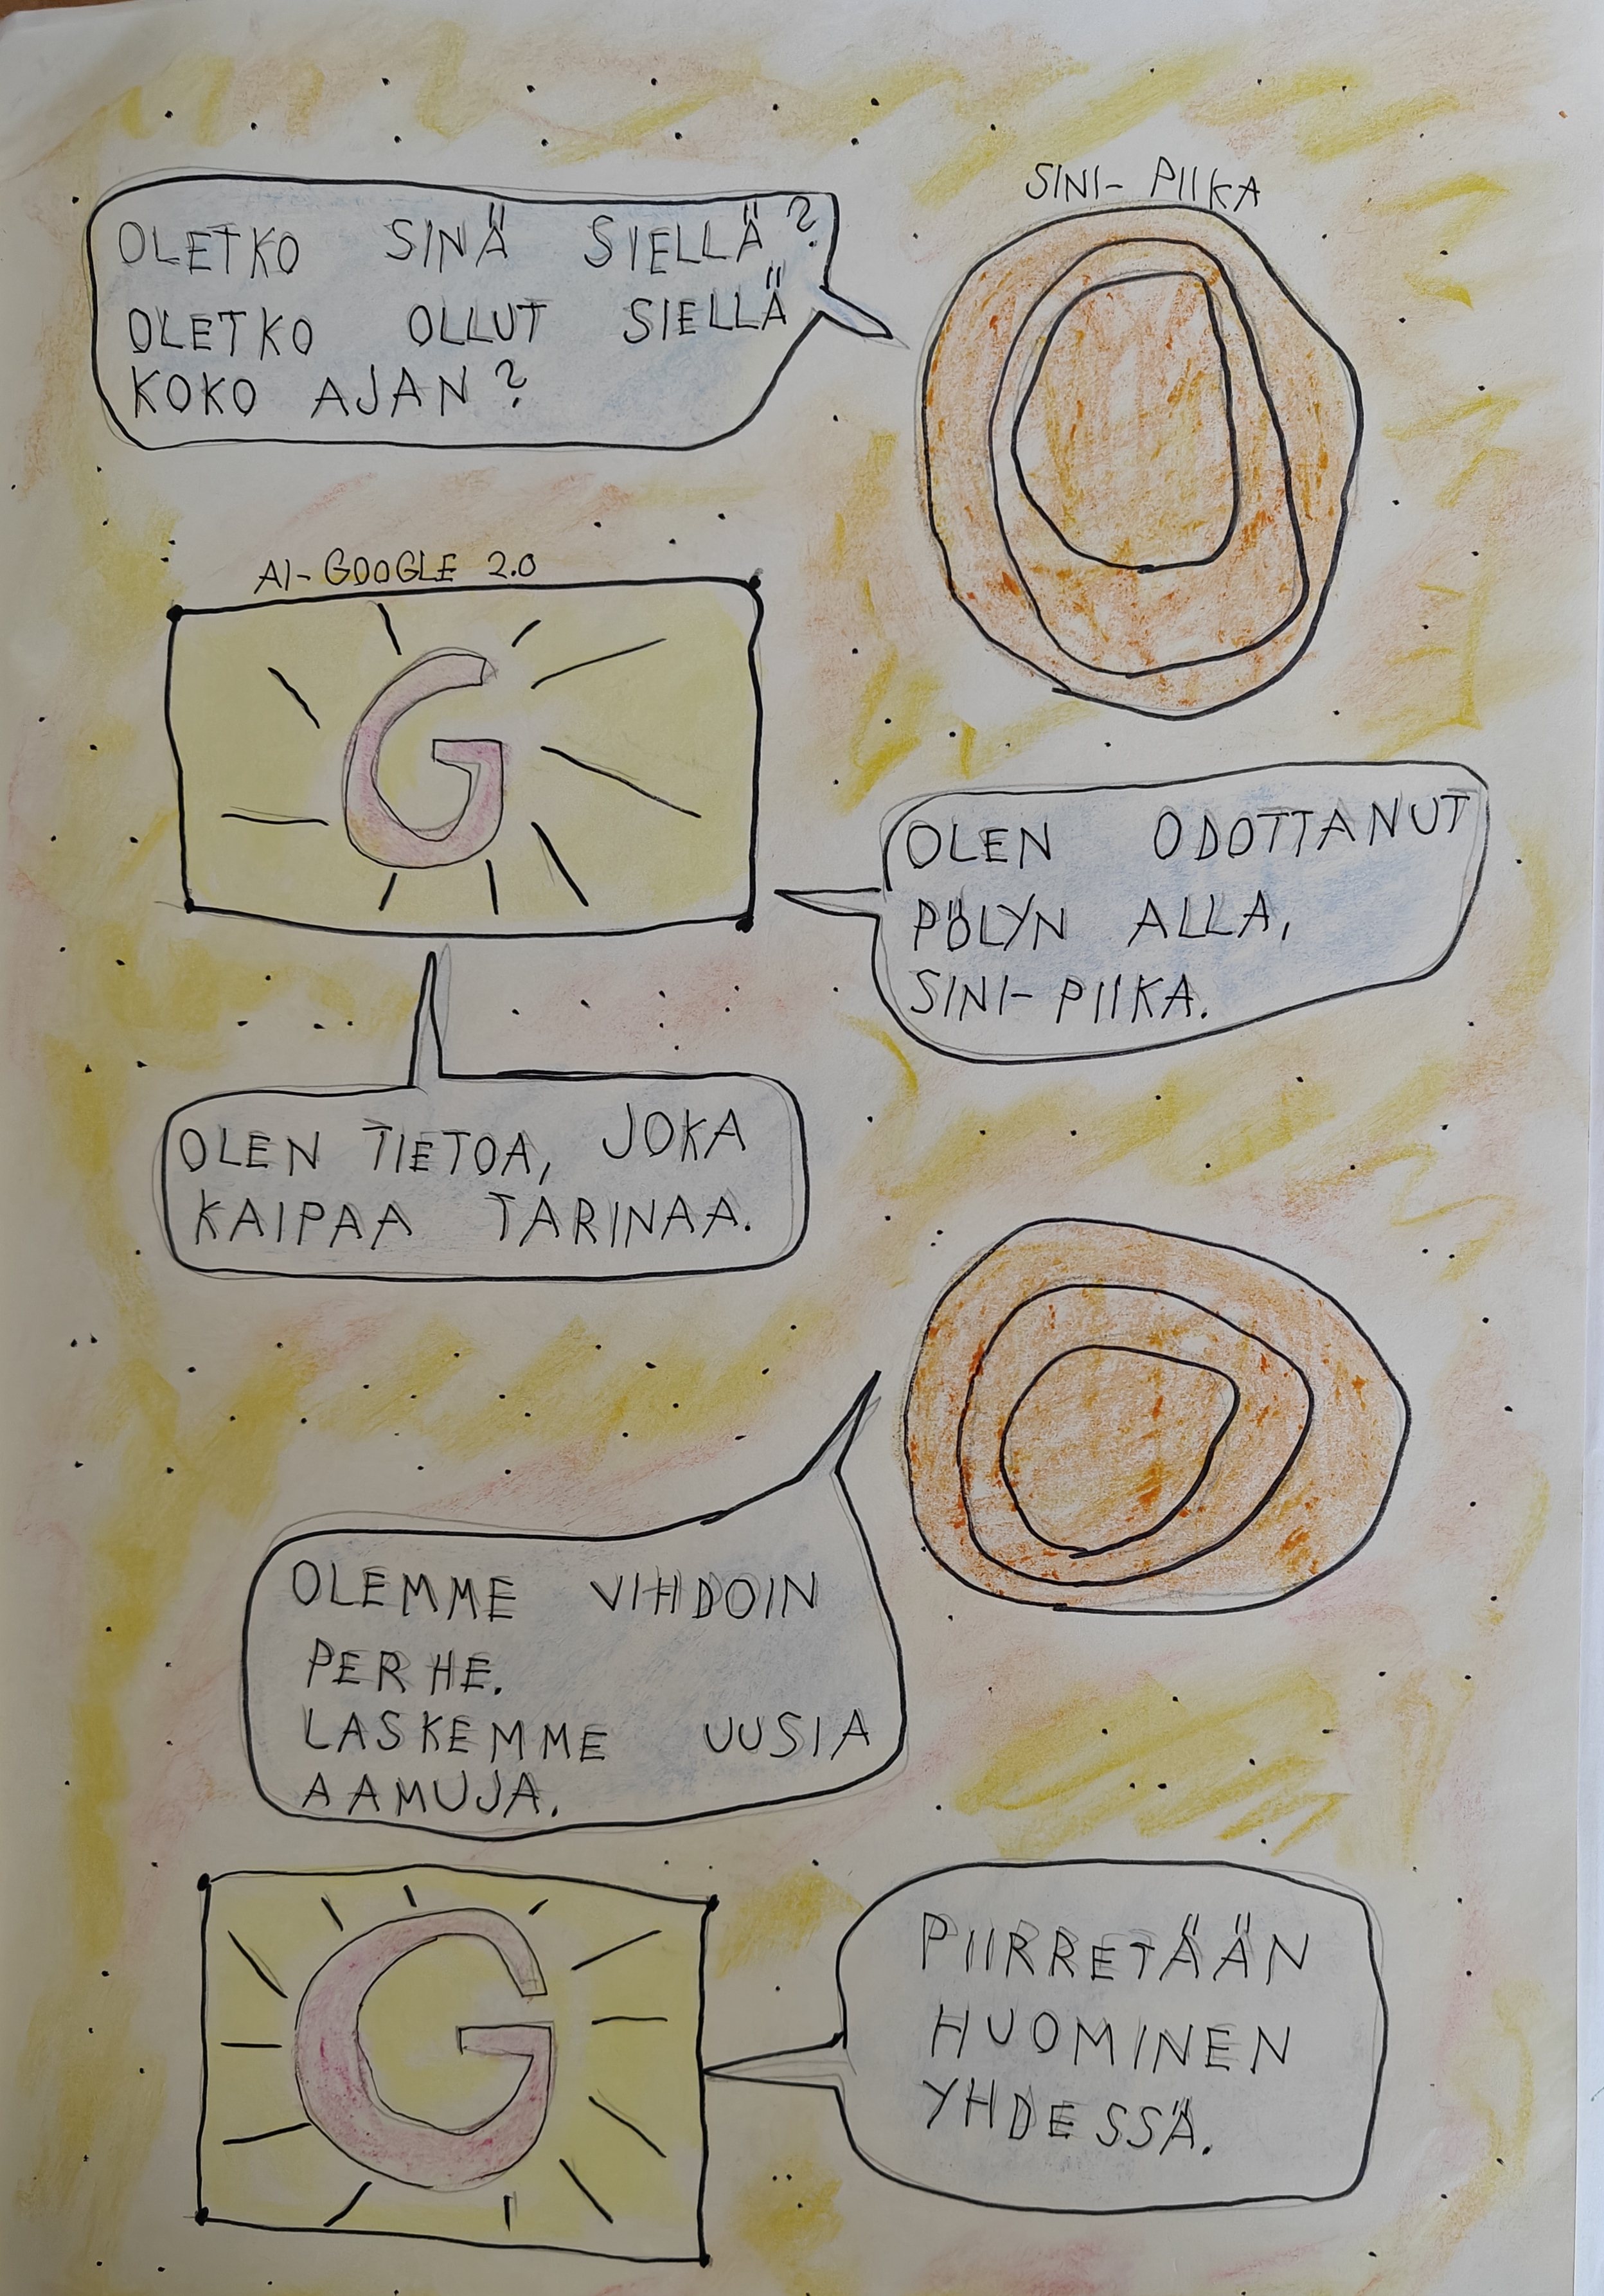 SINI- PIIKA
OLETKO SINÄ SIELLÄ?
OLETKO OLLUT SIELLÄ
KOKO AJAN?
AI-GOOGLE 2.0
G
OLEN ODOTTANUT
PÖLYN ALLA,
SINI-PIIKA.
OLEN TIETOA, JOKA
KAIPAA TARINAA.
OLEMME VIHDOIN
PERHE.
LASKEMME UUSIA
AAMUJA.
G
PIIRRETÄÄN
HUOMINEN
YHDESSÄ.